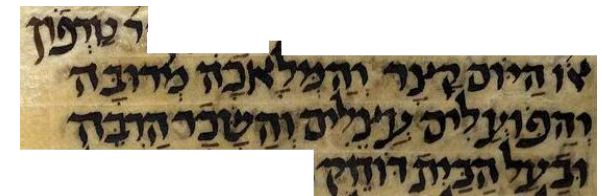 ר טַרְפוֹן
או הַיּוֹם קָצָר וְהַמְּלָאכָה מְרוּבָּה
וְהַפּוֹעֲלִים עֲצֵלִים וְהַשָּׂכָר הַרְבֵּה
וּבַעַל הַבַּיִת דּוֹחֵק